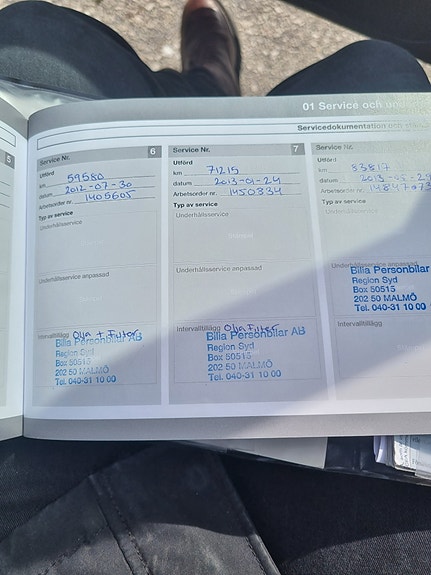 01 Service och
Servicedokumentation
5
Service Nr. 6
Utförd
km 59580
datum 2012-07-30
Arbetsorder nr. 1405605
Typ av service
Underhållsservice
Underhållsservice anpassad
Intervalltillägg Olja + Filter
Bilia Personbilar AB
Region Syd
Box 50515
202 50 MALMÖ
Tel. 040-31 10 00
Service Nr. 7
Utförd
km 71215
datum 2013-01-24
Arbetsorder nr. 1450334
Typ av service
Underhållsservice
Stämpel
Underhållsservice anpassad
Intervalltillägg Olja Filter
Bilia Personbilar AB
Region Syd
Box 50515
202 50 MALMÖ
Tel. 040-31 10 00
Service Nr.
Utförd
km 83817
datum
Arbetsorder nr.
Typ av service
Underhållsservice
Underhållsservice anpassad
Bilia Personbilar
Region Syd
Box 50515
202 50 MALMÖ
Tel. 040-31 10 00
Intervalltillägg